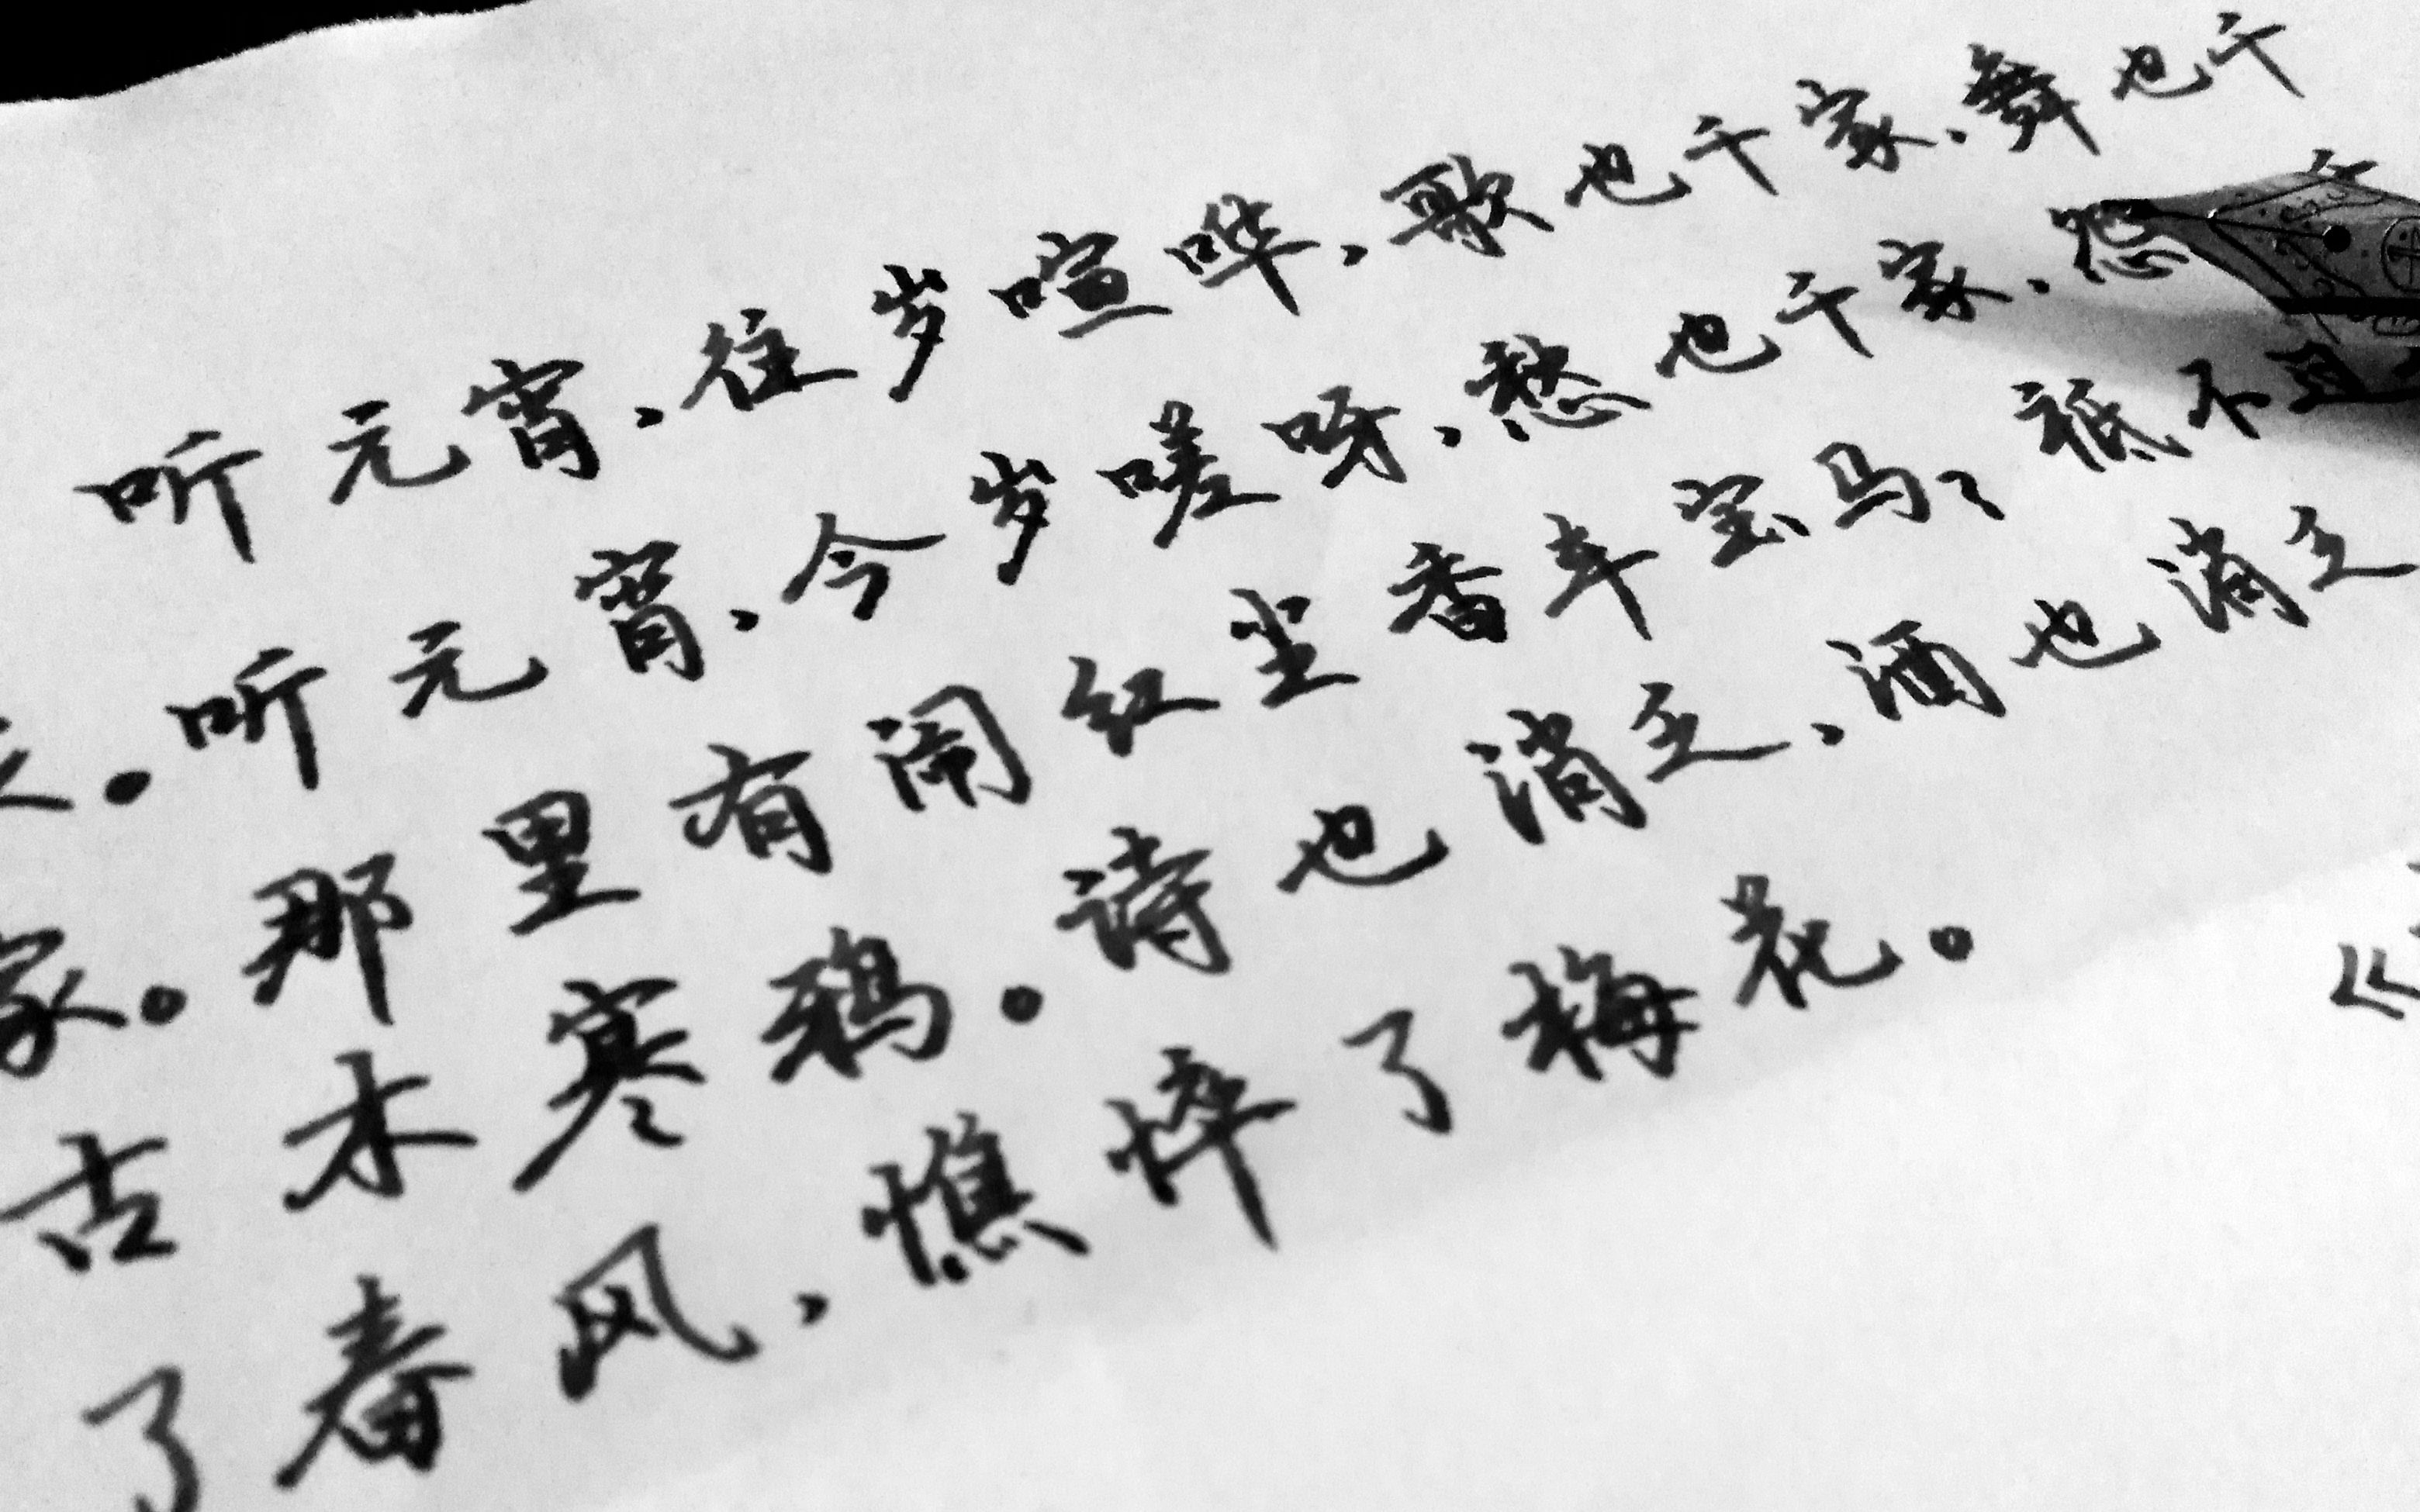 听元宵,往岁喧哗,歌也千家、舞也千
。听元宵,今岁嗟呀,愁也千家,怨
家。那里有闹红尘香车宝马?祗不
古木寒鸦。诗也消乏、酒也消乏
了春风,憔悴了梅花。
《